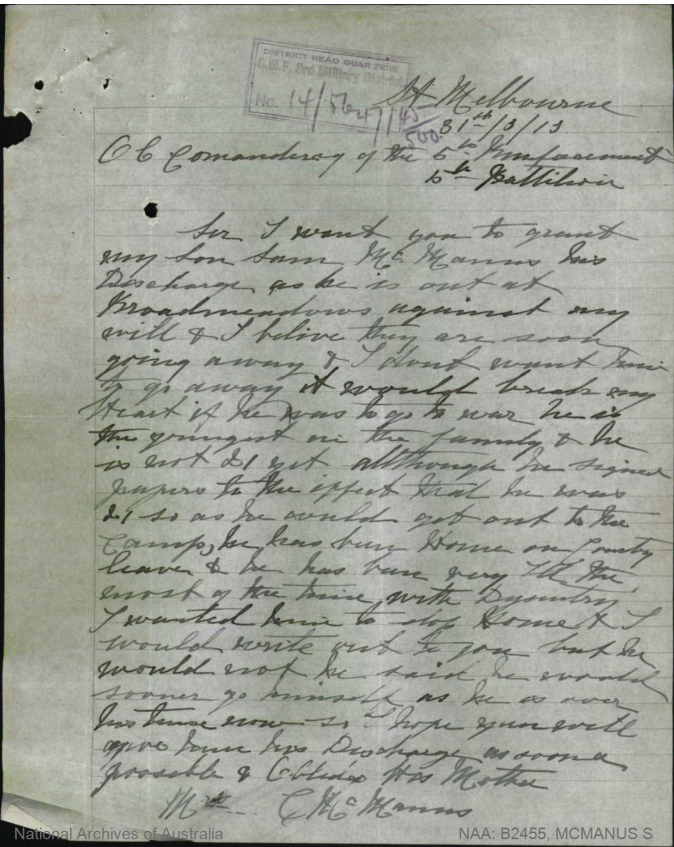 DISTRICT HEAD QUARTERS
C.M.F. 3rd Military District
No. 14/5647/45
500
St Melbourne
31st/3/15
O C Comanderey of the 5th
5th Battilion
Sir I want you to grant
my son Sam McManus his
Discharge as he is out at
Broadmeadows against my
will & I belive they are soon
going away & I dont want him
to go away it would break my
Heart if he was to go to war he is
the youngest in the family & he
is not 21 yet allthough he signed
papers to the effect that he was
21 so as he could get out to the
Camp, he has bun Home on
leave & he has bun very Ill the
most of the time with Dysentry
I wanted him to stop Home & I
would write out to you but he
would not he said he would
sooner go himself as he is over
his time now so I hope you will
give him his Discharge as soon a
possible & Oblidge His Mother
Mrs C McManus
National Archives of Australia
NAA: B2455, MCMANUS S